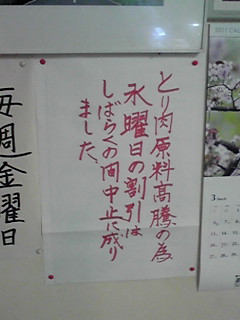 とり肉原料高騰の為
水曜日の割引は
しばらくの間中止に成り
ました、
毎週金曜日
3